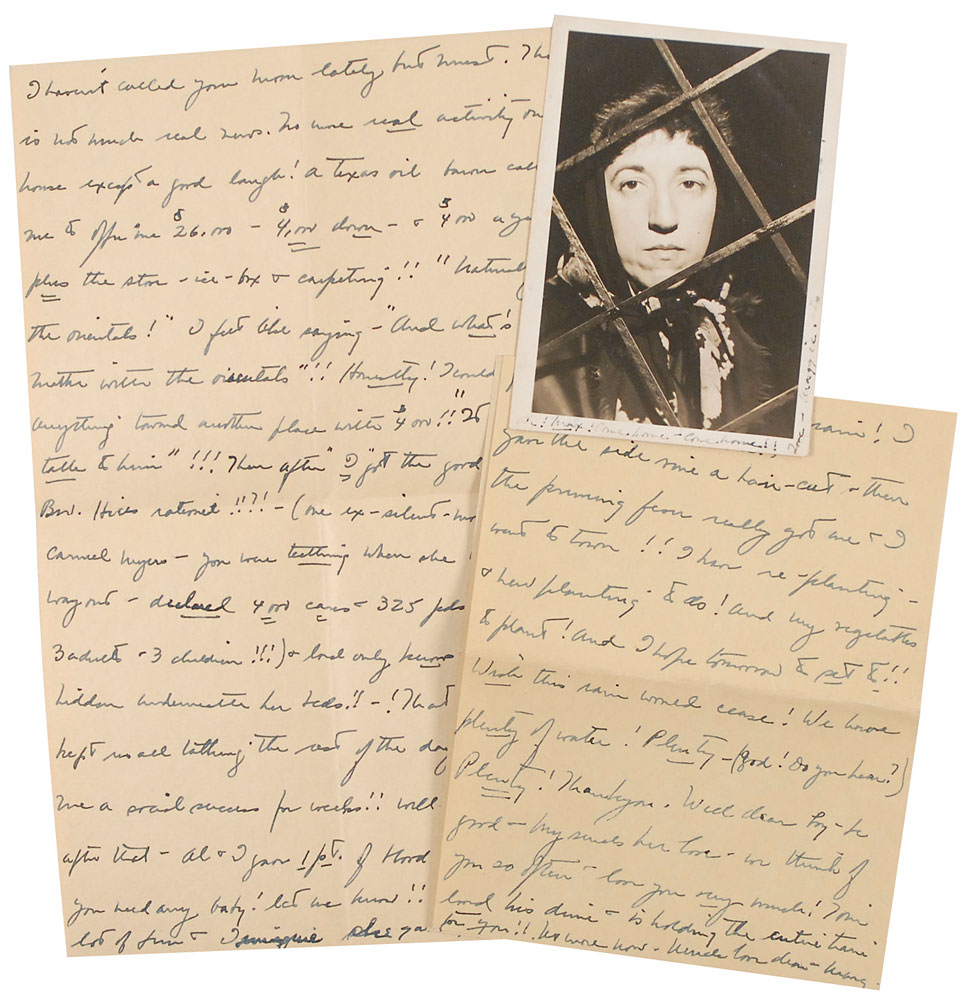 I haven't called your mom lately but must. The
is not much real news. No more real activity on
house except a good laugh! A Texas oil baron call
me to offer me $26,000 - $4,000 down - & $4,000 a yea
plus the stove - ice-box & carpeting!! "Naturally
the orientals!" I felt like saying - "And what's
matter with the orientals"!! Honestly! I could
anything toward another place with $4000!! "To
talk to him"!!! Then after "I" got the good
Bur. Hires rationed!!?! - (one ex-silent-mo
Carmel Myers - you were teething when she
way out - declared 4000 cans - 325 pds
3 adults - 3 children!!!) & lord only knows
hidden underneath her beds!! - ! That
kept us all talking the rest of the day
me a social success for weeks!! Well
after that - Al & I gave 1 pt. of blood
you need any, baby! let me know!!
lot of fun & I imagine she ga
Come home - come home!!
Maggie.
rain! I
gave the side vine a hair-cut & then
the pruning fever really got me & I
went to town!! I have re-planting -
& new planting to do! And my vegetables
to plant! And I hope tomorrow to set to!!
Wish this rain would cease! We have
plenty of water! Plenty - (God! Do you hear?)
Plenty! Thank you. Well dear boy - be
good - My sends her love - we think of
you so often & love you very much! Tom
loved his dime & is holding the entire train
for you!! No more now - Much love dear - Marg.